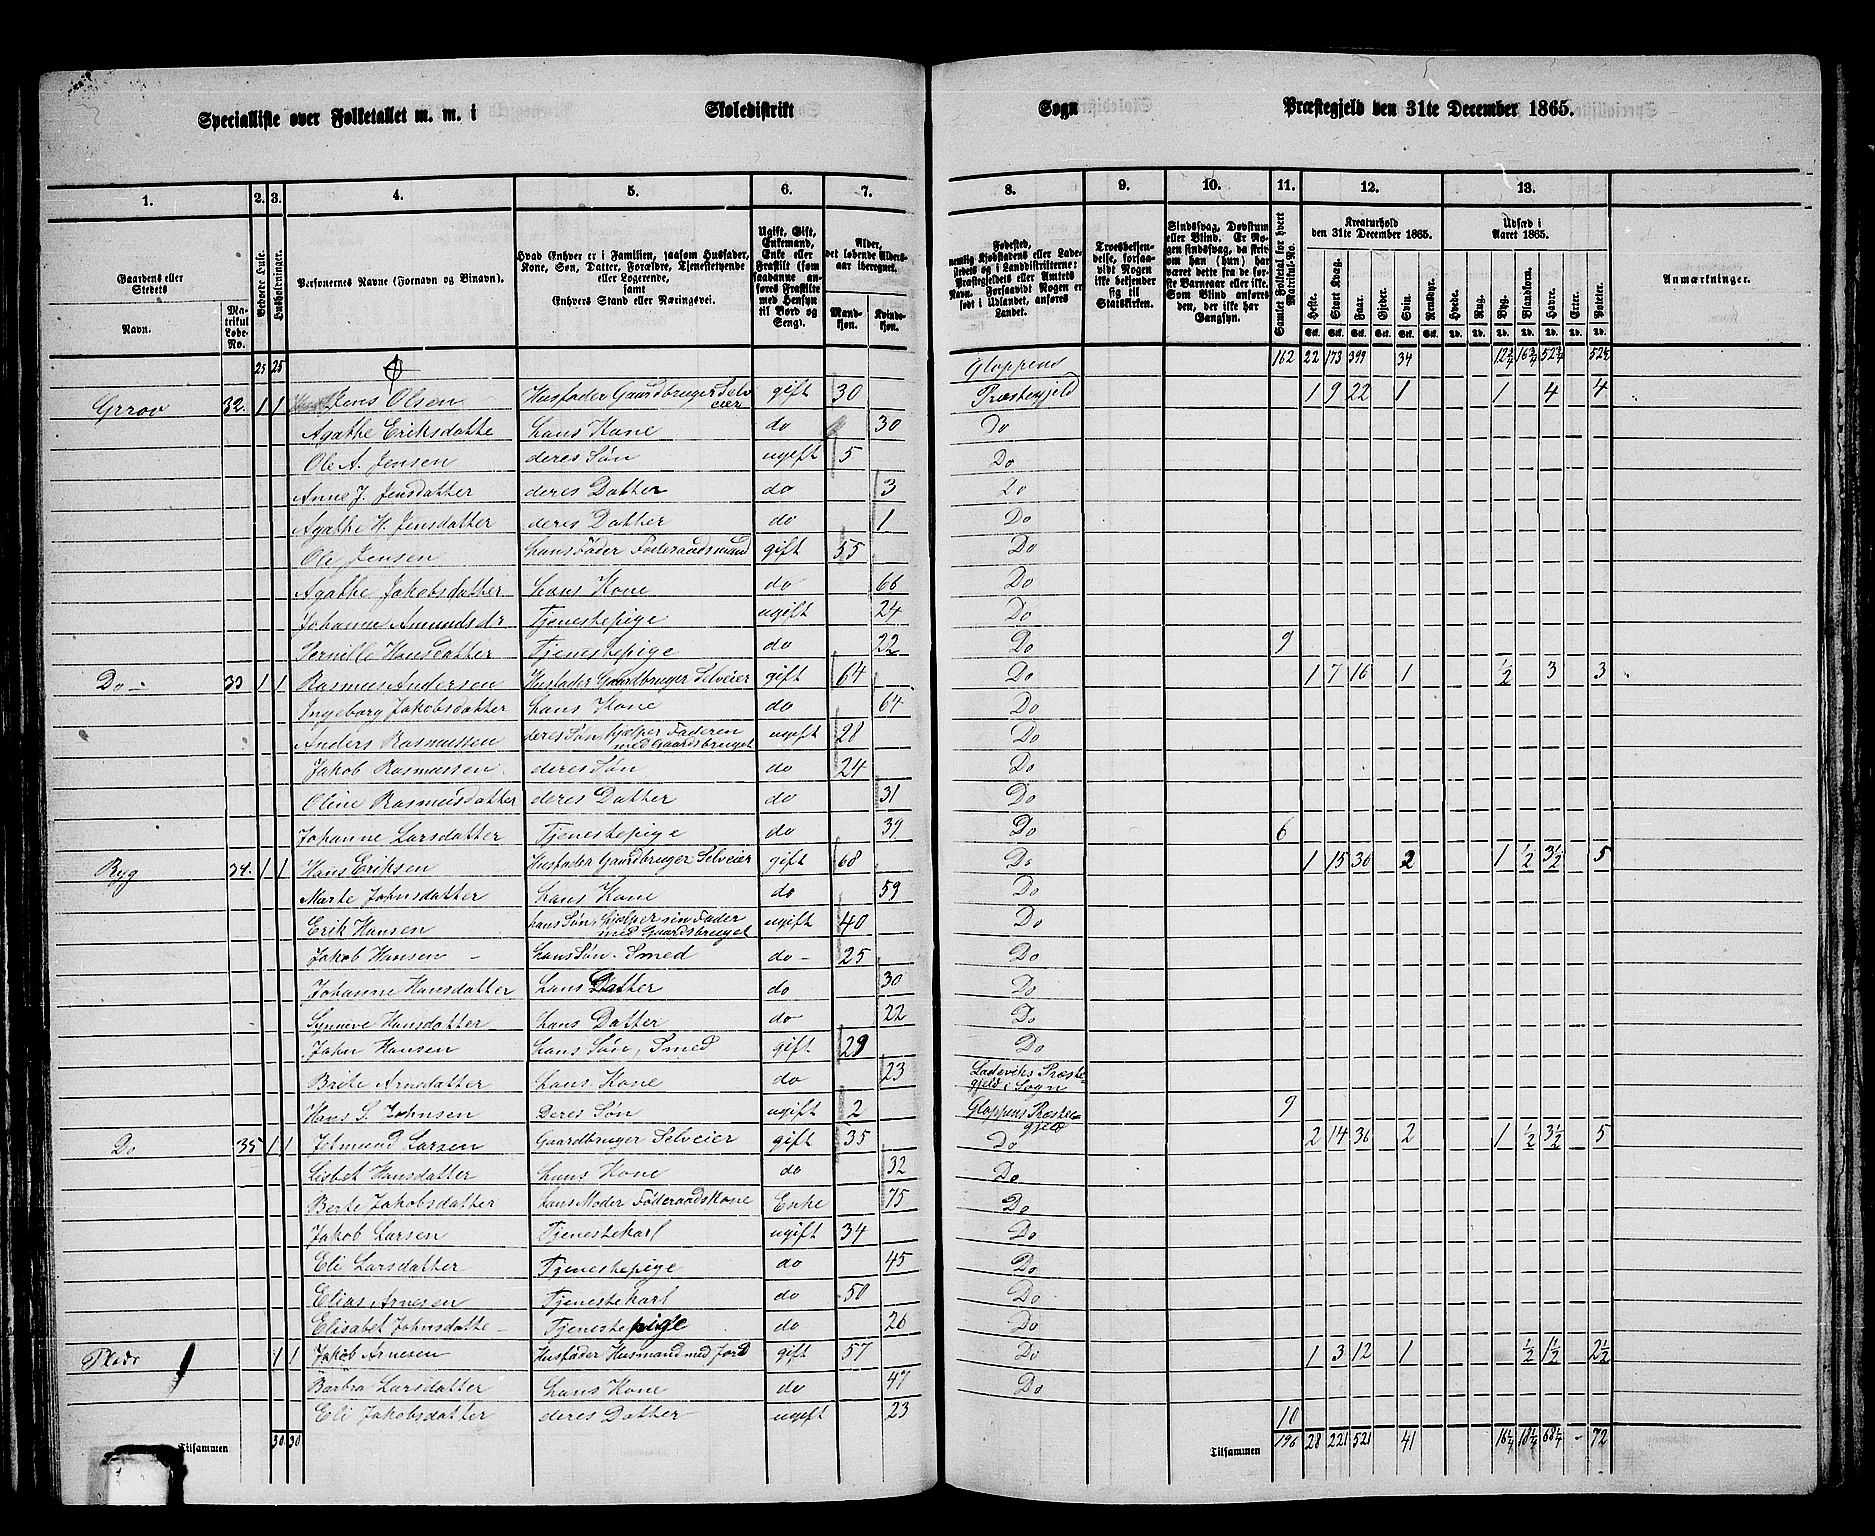 Specialliste over Folketallet m. m. i Skoledistrikt Sogn Præstegjeld den 31te December 1865.
1. 2. 3. 4. 5. 6. 7. 8. 9. 10. 11. 12. 13.
Gaardens eller Stedets Navn. Matrikul Løbe-No. Beboede Huse. Husholdninger. Personernes Navne (Fornavn og Binavn). Hvad Enhver er i Familien, saasom Husfader, Kone, Søn, Datter, Forældre, Tjenestetyende eller Logerende, samt Enhvers Stand eller Næringsvei. Ugift, Gift, Enkemand, Enke eller Fraskilt (som saadanne anføres Fraskilte med Hensyn til Bord og Seng). Alder, det løbende Aldersaar iberegnet. Mandkjøn. Kvindekjøn.
Fødested, nemlig Kjøbstadens eller Ladestedets og i Landdistrikterne: Præstegjeldets eller Amtets Navn. Forsaavidt Nogen er født i Udlandet, anføres Landet. Troesbekjendelse, forsaavidt Nogen ikke bekjender sig til Statskirken. Sindssvag, Døvstum eller Blind. Er Nogen sindssvag, da skrives om han (hun) har været dette fra de første Barneaar eller ikke. Som Blind anføres den, der ikke har Gangsyn. Samlet Folketal for hvert Matrikul-No. Kreaturhold den 31te December 1865. Heste. Stort Kvæg. Faar. Gjeder. Svin. Rensdyr. Udsæd i Aaret 1865. Hvede. Rug. Byg. Blandkorn. Havre. Erter. Poteter. Anmærkninger.
25 25 Gloppens 162 22 173 399 34
Grrov 32. 1 1 Jens Olsen Husfader Gaardbruger Selveier gift 30 Præstegjeld 1 9 22 1 1 4 4
Agathe Eriksdatte hans Kone do 30 Do
Ole A. Jensen deres Søn ugift 5 Do
Anne J. Jensdatter deres Datter do 3 Do
Agathe H. Jensdatter deres Datter do 1 Do
Ole Jensen hans Fader Føderaadsmand gift 55 Do
Agathe Jakobsdatter hans Kone do 66 Do
Johanne Amundsdr Tjenestepige ugift 24 Do
Pernille Hansdatter Tjenestepige do 22 Do 9
Do 33 1 1 Rasmus Andersen Husfader Gaardbruger Selveier gift 64 Do 1 7 16 1 1/2 3 3
Ingeborg Jakobsdatter hans Kone do 64 Do
Anders Rasmussen deres Søn, hjælper Faderen med Gaardsbruget ugift 28 Do
Jakob Rasmussen deres Søn do 24 Do
Oline Rasmusdatter deres Datter do 31 Do
Johanne Larsdatter Tjenestepige do 39 Do 6
Byg 34. 1 1 Hans Eriksen Husfader Gaardbruger Selveier gift 68 Do 1 15 30 2 1 1/2 3 1/2 5
Marte Johnsdatter hans Kone do 59 Do
Erik Hansen hans Søn, hjælper sin Fader med Gaardsbruget ugift 40 Do
Jakob Hansen hans Søn. Smed do 25 Do
Johanne Hansdatter hans Datter do 30 Do
Synneve Hansdatter hans Datter do 22 Do
John Hansen hans Søn, Smed gift 29 Do
Brite Arnedatter hans Kone do 23 Ladeviks Præstegjeld i Sogn
Hans S. Johnsen Deres Søn ugift 2 Gloppens Præstegjeld 9
Do 35 1 1 Jetmund Larsen Gaardbruger Selveier gift 35 Do 2 14 36 2 1 1/2 3 1/2 5
Lisbet Hansdatter hans Kone do 32 Do
Berte Jakobsdatter hans Moder Føderaadskone Enke 75 Do
Jakob Larsen Tjenestekarl ugift 34 Do
Eli Larsdatter Tjenestepige do 45 Do
Elias Arnesen Tjenestekarl do 50 Do
Elisabet Johnsdatte Tjenestepige do 26 Do
Plads 1 1 Jakob Arnesen Husfader Husmand med Jord gift 57 Do 1 3 12 1 1/2 1 1/2 2 1/2
Barbra Larsdatter hans Kone do 47 Do
Eli Jakobsdatter deres Datter ugift 23 10
Tilsammen 30 30 Tilsammen 196 28 221 521 41 16 1/4 18 1/4 68 1/4 - 72